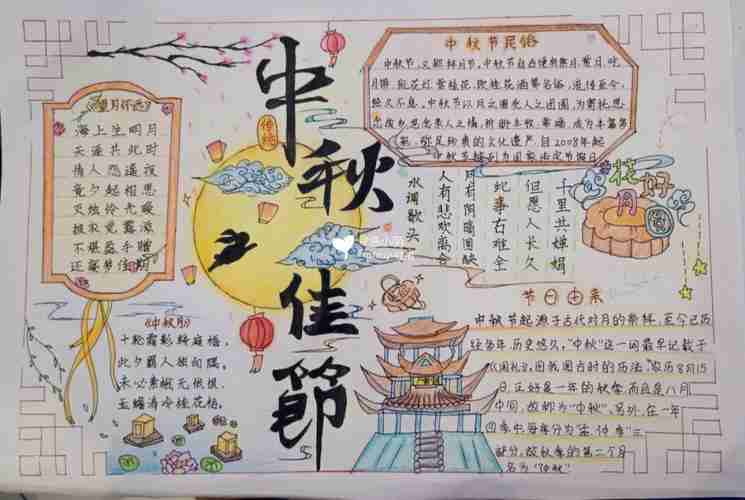 中秋佳節
传统
《望月怀远》
海上生明月
天涯共此时
情人怨遥夜
竟夕起相思
灭烛怜光
披衣觉露滋
不堪盈手赠
还寝梦佳期
《中秋月》
十轮霜影转庭梧,
此夕羁人独向隅。
未必素娥无怅恨,
玉蟾清冷桂花孤。
中秋节民俗
中秋节,又称拜月节,中秋节自古便有祭月、赏月、吃
月饼、玩花灯、赏桂花、饮桂花酒等民俗,流传至今,
经久不息。中秋节以月之圆兆人之团圆,为寄托思
念故乡,思念亲人之情,祈盼丰收、幸福,成为丰富多
彩、弥足珍贵的文化遗产。自2008年起
中秋节被列为国家法定节假日
水调歌头
人有悲欢离合
月有阴晴圆缺
此事古难全
但愿人长久
千里共婵娟
花好月圆
节日由来
中秋节起源于古代对月的祭拜,至今已历
经多年,历史悠久,“中秋”这一词最早记载于
《周礼》,因我国古时的历法,“农历8月15
日,正好是一年的秋季,而且是八月
中间,故称为“中秋”。另外,在一年
四季中,每年分为“孟、仲、季”三
部分,故秋季的第二个月
名为“仲秋”